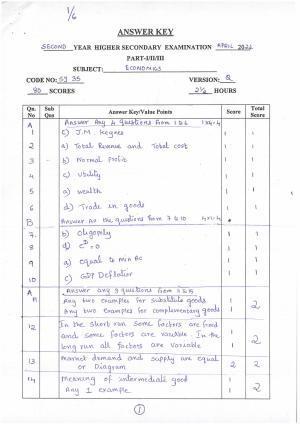 1/6
ANSWER KEY
SECOND YEAR HIGHER SECONDARY EXAMINATION APRIL
PART-I/II/III
SUBJECT: ECONOMICS
CODE NO: SY 35 VERSION: Q
80 SCORES 2½ HOURS
Qn. No Sub Qns Answer Key/Value Points Score Total Score
A Answer Any 4 questions from 1 to 6 1x4=4
1 c) J.M. Keynes 1 1
2 a) Total Revenue and Total cost 1 1
3 b) Normal profit 1 1
4 c) Utility 1 1
5 a) wealth 1 1
6 d) Trade in goods 1 1
B Answer all the questions from 7 to 10 4x1=4
7 b) Oligopoly 1 1
8 d) = 0 1 1
9 a) equal to min AC 1 1
10 c) GDP Deflator 1 1
A Answer any 3 questions from
11 Any two examples for substitute goods 1
Any two examples for complementary goods 1 2
12 In the short run some factors are fixed
and some factors are variable. In the 1
long run all factors are variable 1 2
13 Market demand and supply are equal
or Diagram 2 2
14 Meaning of intermediate good 1
Any 1 example 1 2
1